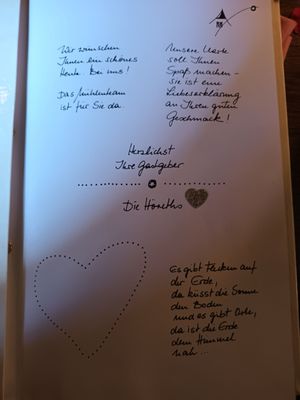 Wir wünschen
Ihnen ein schönes
Heute bei uns!
Das Mühlenteam
ist für Sie da.
Unsere Karte
soll Ihnen
Spaß machen –
sie ist eine
Liebeserklärung
an Ihren guten
Geschmack!
Herzlichst
Ihre Gastgeber
Die Höreths
Es gibt Flecken auf
der Erde,
da küsst die Sonne
den Boden
und es gibt Orte,
da ist die Erde
dem Himmel
nah...